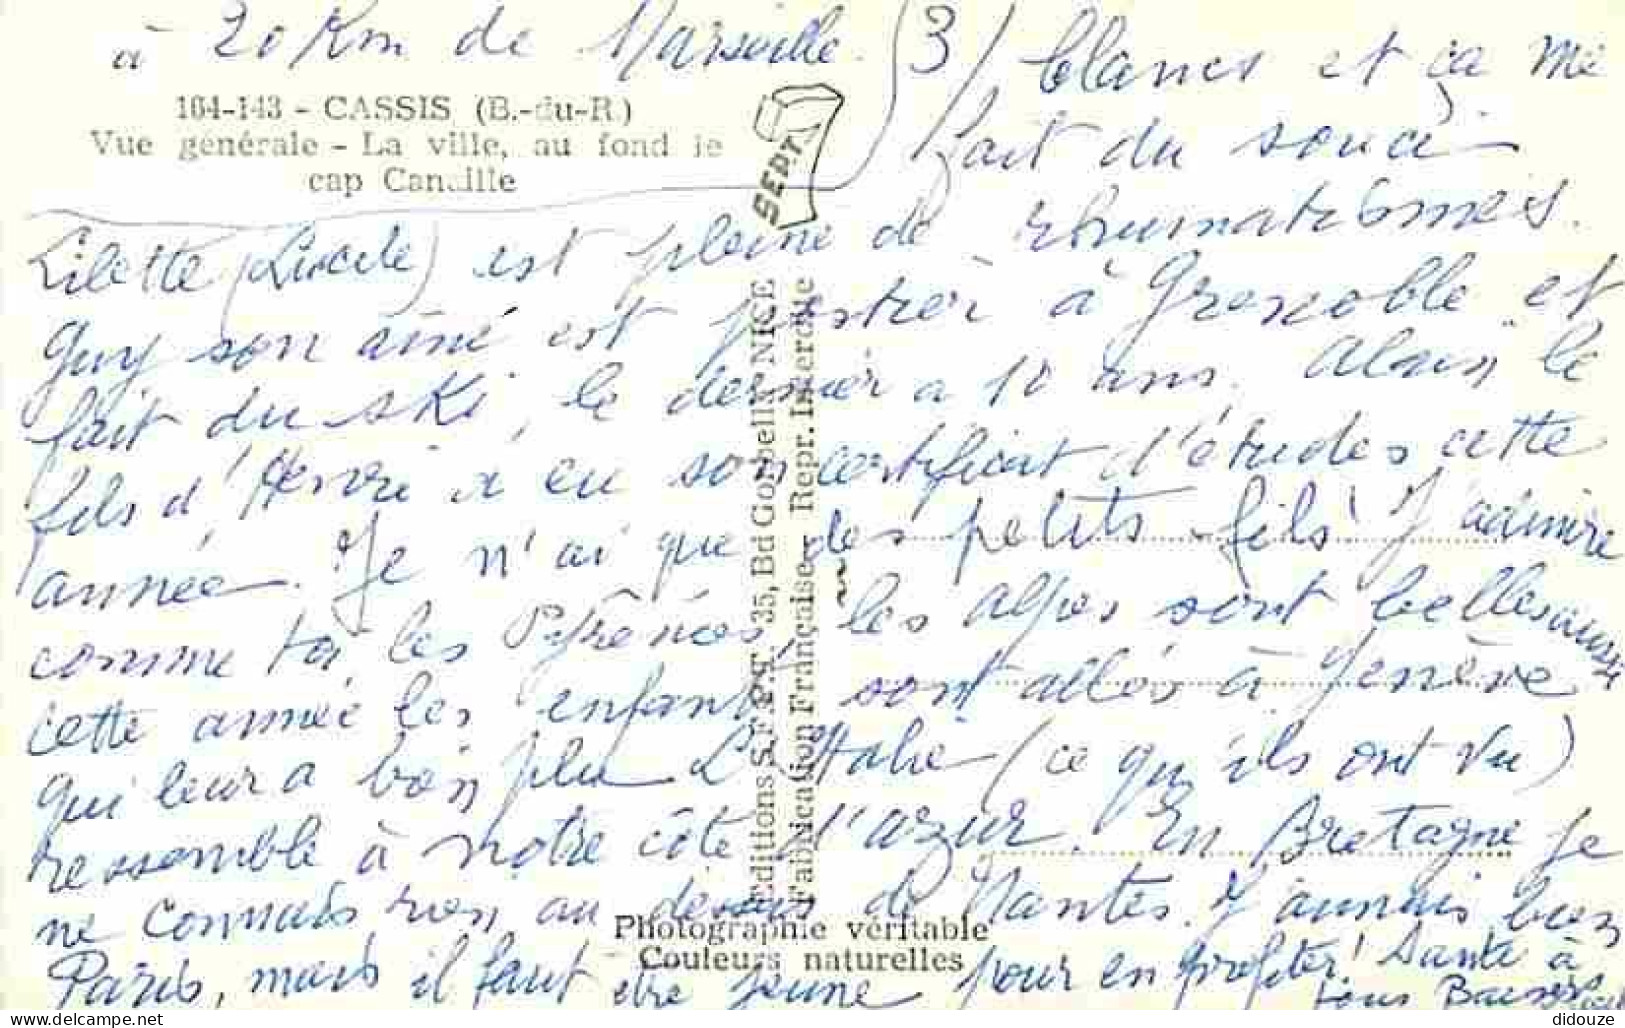 à 20 Km de Marseille. 3/ blancs et ça me
164-143 - CASSIS (B.-du-R.)
Vue générale - La ville, au fond le
cap Canaille
SEPT
fait du souci
Lilette (Lucile) est pleine de rhumatismes.
Guy son aîné est à Grenoble et
fait du ski, le dernier a 10 ans. Alain le
fils d'Henri a eu son certificat d'études cette
année. Je n'ai que des petits-fils! J'admire
comme toi les Pyrénées, les Alpes sont belles aussi
cette année les enfants sont allés à Genève
qui leur a bien plu L'Italie (ce qu'ils ont vu)
ressemble à notre côte d'azur. En Bretagne je
ne connais rien au dessus de Nantes. J'aimais bien
Paris, mais il faut être jeune pour en profiter! Santé à
tous Baisers
Editions S.E.P.T. 35, Bd Gorbella NICE
Fabrication Française - Repr. Interdite
Photographie véritable
Couleurs naturelles
delcampe.net
didouze